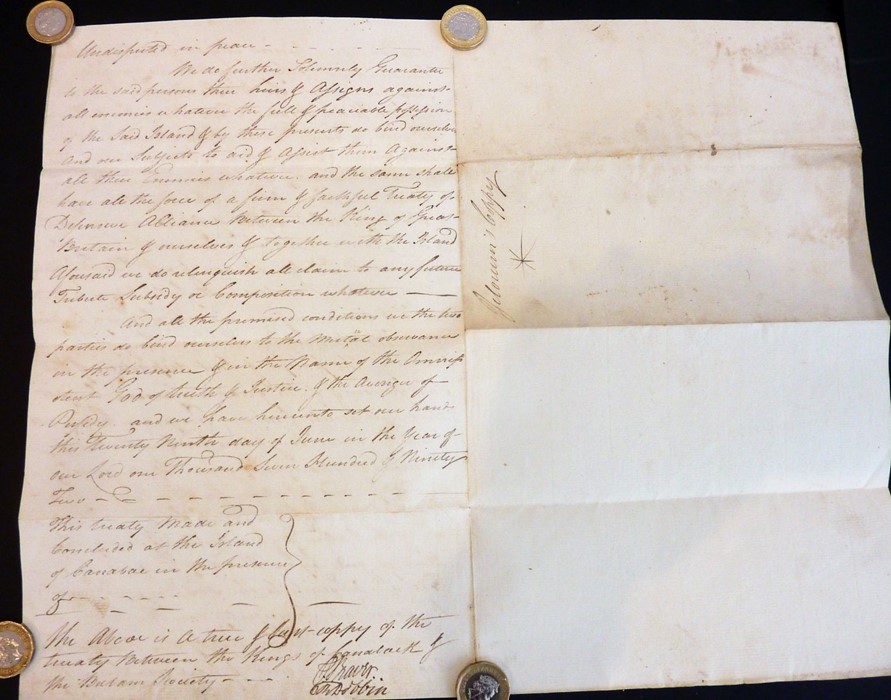 Undisputed in peace
We do further Solemnly Guarantee
to the said persons their heirs & Assigns against
all enemies whatever the full & peaciable possession
of the Said Island & by these presents do bind ourselves
and our Subjects to aid & Assist them Against
all their Enemies whatever and the same shall
have all the force of a firm & faithful Treaty of
Defensive Alliance Between the King of Great
Britain & ourselves & together with the Island
Aforesaid we do relinquish all claim to any future
Tribute Subsedy or Composition whatever
And all the promised conditions we the two
parties do bind ourselves to the Mutal observance
in the presence & in the Name of the Omnip
otent God of truth & Justice & the Avenger of
and we have hereunto set our hands
this Twenty Ninth day of June in the Year of
our Lord one Thousand Seven Hundred & Ninety
Two
This treaty Made and
Concluded at the Island
of Canabac in the presence
of
the Above is a true & just copy of the
treaty Between the Kings of Canaback &
the Bulam Society
Dobbin
Coppy